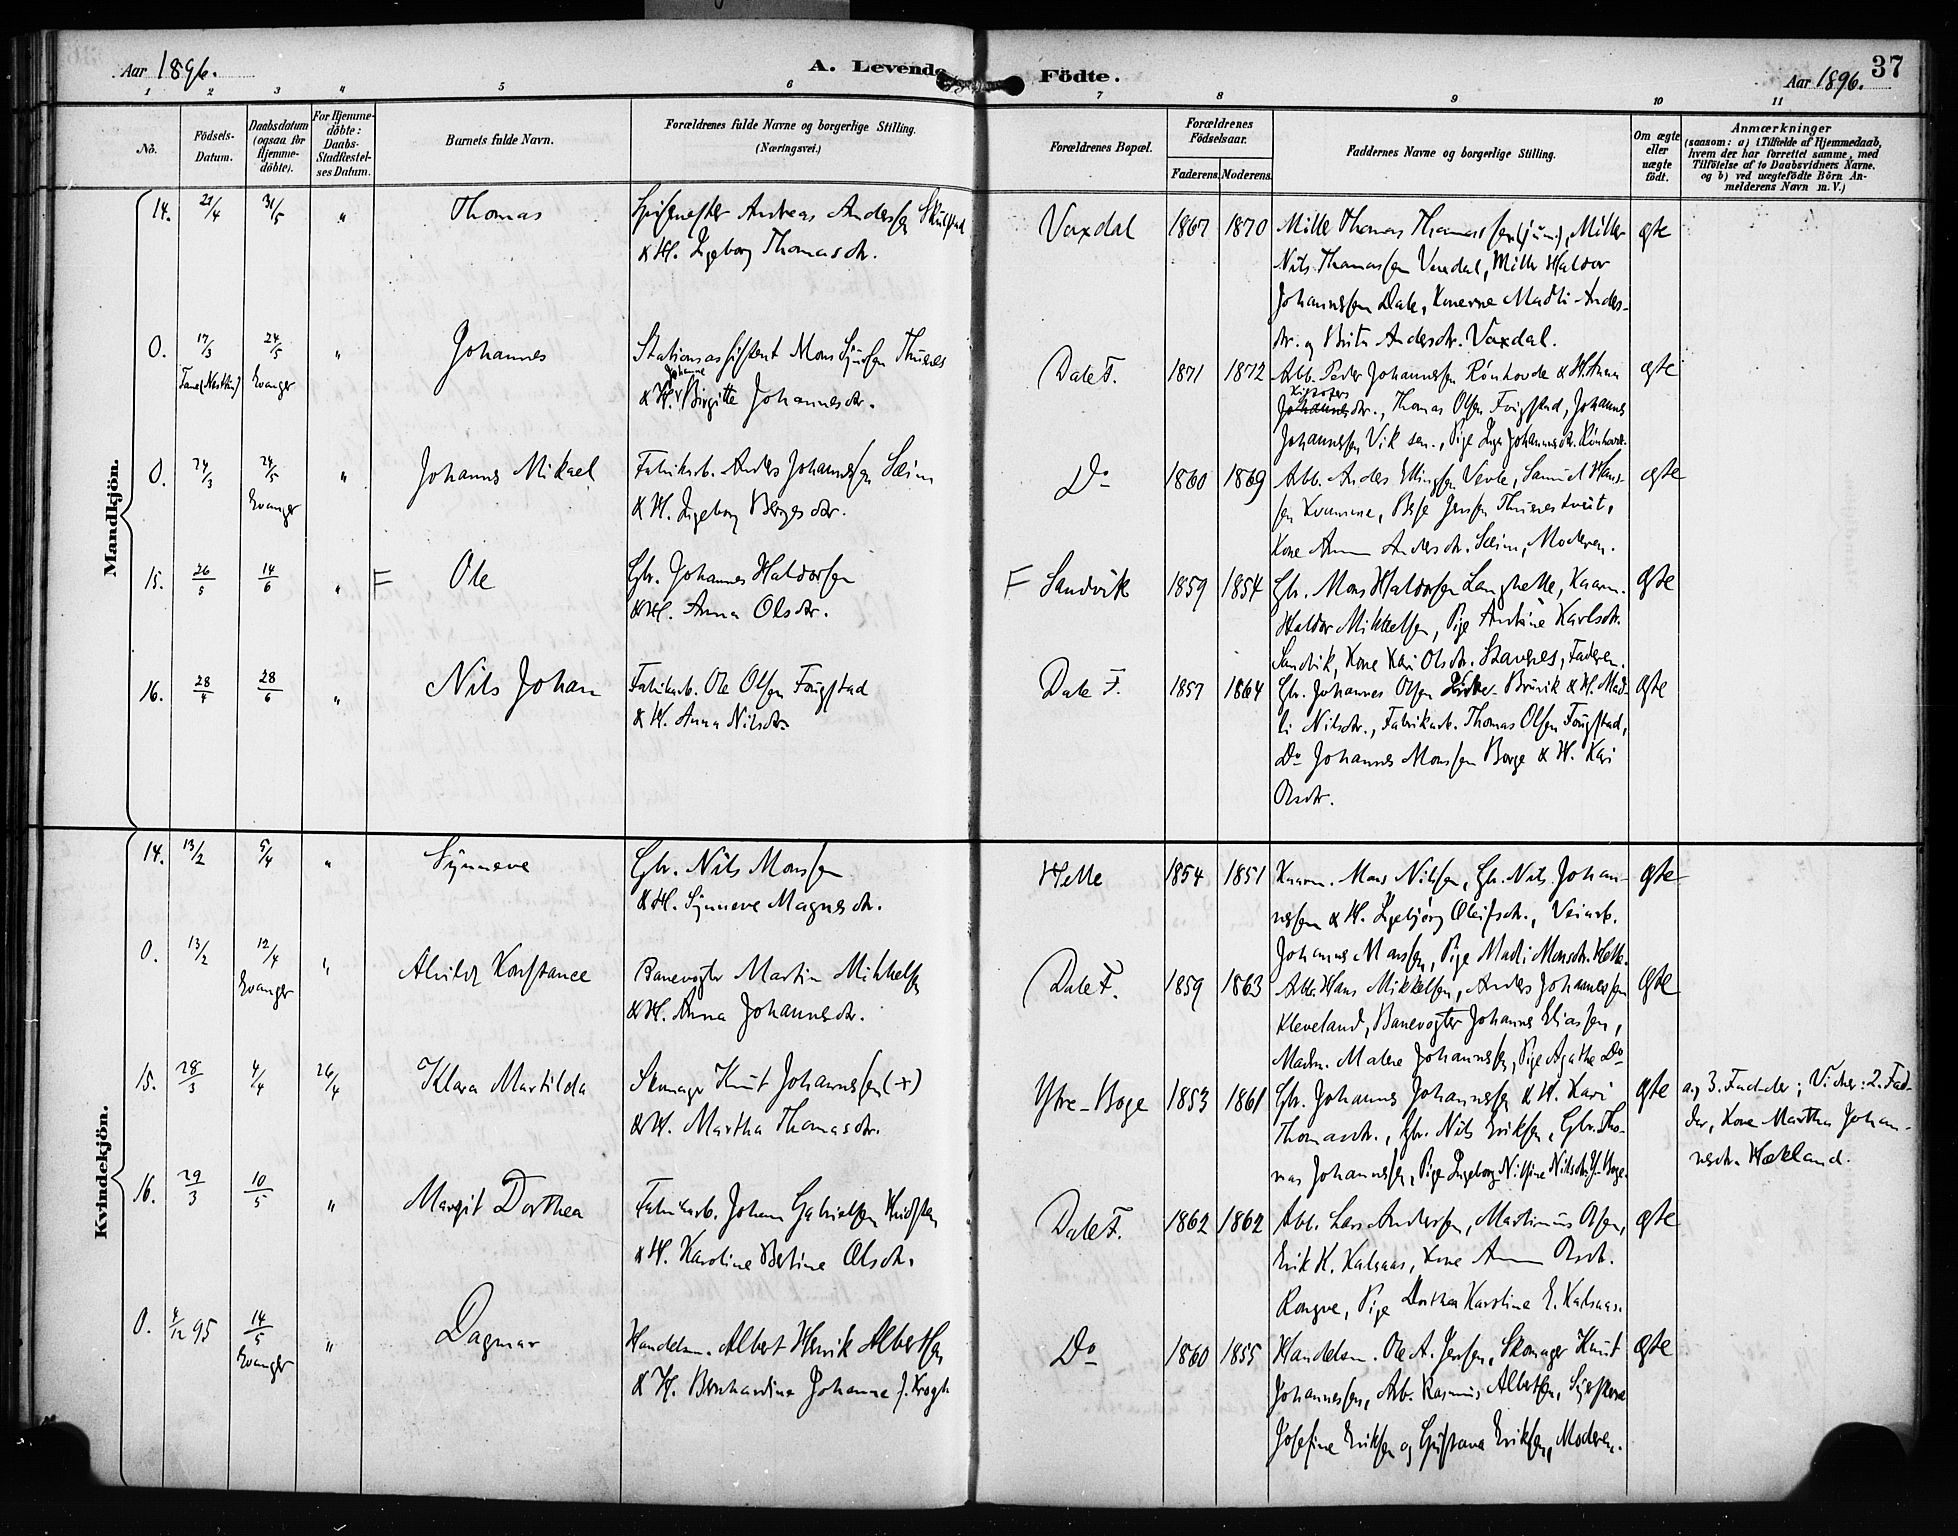 Aar 1896.
A. Levende Födte.
Aar 1896.
37
1 2 3 4 5 6 7 8 9 10 11
No.
Födsels-Datum.
Daabsdatum (ogsaa for Hjemme-döbte).
For Hjemme-döbte: Daabs-Stadfæstel-ses Datum.
Barnets fulde Navn.
Forældrenes fulde Navne og borgerlige Stilling. (Næringsvei.)
Forældrenes Bopæl.
Forældrenes Födselsaar.
Faderens. Moderens.
Faddernes Navne og borgerlige Stilling.
Om ægte eller uægte födt.
Anmærkninger
(saasom: a) i Tilfælde af Hjemmedaab,
hvem der har forrettet samme, med
Tilföielse af to Daabsvidners Navne.
og b) ved uægtefödte Börn An-
melderens Navn m. V.)
Mandkjön.
14. 21/4 31/5 " Thomas
Andreas Anderssen Skulstad
& H. Ingeborg Thomasdtr.
Vaxdal 1867 1870
Mille Thomas Thomassen (jun), Møller
Nils Thomassen Vaxdal, Møller Haldor
Johannessen Dale, Konerne Madli Anders-
dtr. og Brita Andersdtr. Vaxdal.
ægte
0. 17/3 24/5 Evanger " Johannes
Stationsassistent Mons Sjursen
& H. Johanne Birgitte Johannesdtr.
Dale F. 1871 1872
Arb. Peder Johannessen Rønhovde & H. Anna
Johannesdtr., Thomas Olsen Fougstad, Johannes
Johannessen Vik sen., Pige Inga Johannesdtr. Rønhovde.
ægte
0. 24/3 24/5 Evanger " Johannes Mikael
Fabrikarb. Anders Johannessen Seim
& H. Ingeborg Bergesdtr.
Do 1860 1869
Arb. Anders Ellingsen Verle, Samuel Hans-
sen Kvamme, Berge Jenssen
Kone Anna Andersdtr. Seim, Moderen.
ægte
15. 26/5 14/6 " F Ole
Gbr. Johannes Haldorsen
& H. Anna Olsdtr.
F Sandvik 1859 1854
Gbr. Mons Haldorsen Langhelle, Kaarm.
Haldor Mikkelsen, Pige Antone Karlsdtr.
Sandvik, Kone Kari Olsdtr. Stavnes, Faderen.
ægte
16. 28/4 28/6 " Nils Johan
Fabrikarb. Ole Olsen Fougstad
& H. Anna Nilsdtr.
Dale F. 1857 1864
Gbr. Johannes Olsen Bruvik & H. Mad-
li Nilsdtr., Fabrikarb. Thomas Olsen Fougstad,
Do Johannes Monssen Borge & H. Kari
Olsdtr.
ægte
Kvindekjön.
14. 13/2 5/4 " Synneve
Gbr. Nils Monssen
& H. Synneve Magnesdtr.
Helle 1854 1851
Kaarm. Mons Nilssen, Gbr. Nils Johan-
nessen & H. Ingebjørg Oleifsdtr., Veiarb.
Johannes Monssen, Pige Madli Monsdtr. Helle.
ægte
0. 13/2 12/4 Evanger " Alvilda Konstance
Banevogter Martin Mikkelsen
& H. Anna Johannesdtr.
Dale F. 1859 1863
Arb. Hans Mikkelsen, Anders Johannessen
Kleveland, Banevogter Johannes Eliassen,
Madm. Malene Johannessen, Pige Agathe Do
ægte
15. 28/3 4/4 26/4 Klara Martilda
Skomager Knut Johannessen (+)
& H. Martha Thomasdtr.
Ytre-Boge 1853 1861
Gbr. Johannes Johannessen & H. Kari
Thomasdtr., Gbr. Nils Eriksen, Gbr. Tho-
mas Johannessen, Pige Ingeborg Nilsine Nilsdtr. Y. Boge.
ægte
a) 3. Fadder; Vidner: 2. Fad-
der, Kone Martha Johan-
nesdtr. Hækland.
16. 29/3 10/5 " Margit Dorthea
Fabrikarb. Johan Gabrielsen
& H. Karoline Bertine Olsdtr.
Dale F. 1862 1862
Arb. Lars Anderssen, Martinus Olsen,
Erik K. Kalsaas, Kone Anna Olsdtr.
Rongve, Pige Dorthea Karoline E. Kalsaas.
ægte
0. 4/12 95 14/5 Evanger " Dagmar
Handelsm. Albert Henrik Albertsen
& H. Bernhardine Johanne f. Krogh
Do 1860 1855
Handelsm. Ole A. Jenssen, Skomager Knut
Johannessen, Arb. Rasmus Albertsen, Syerskerne
Josefine Eriksen og Gustava Eriksen, Moderen.
ægte